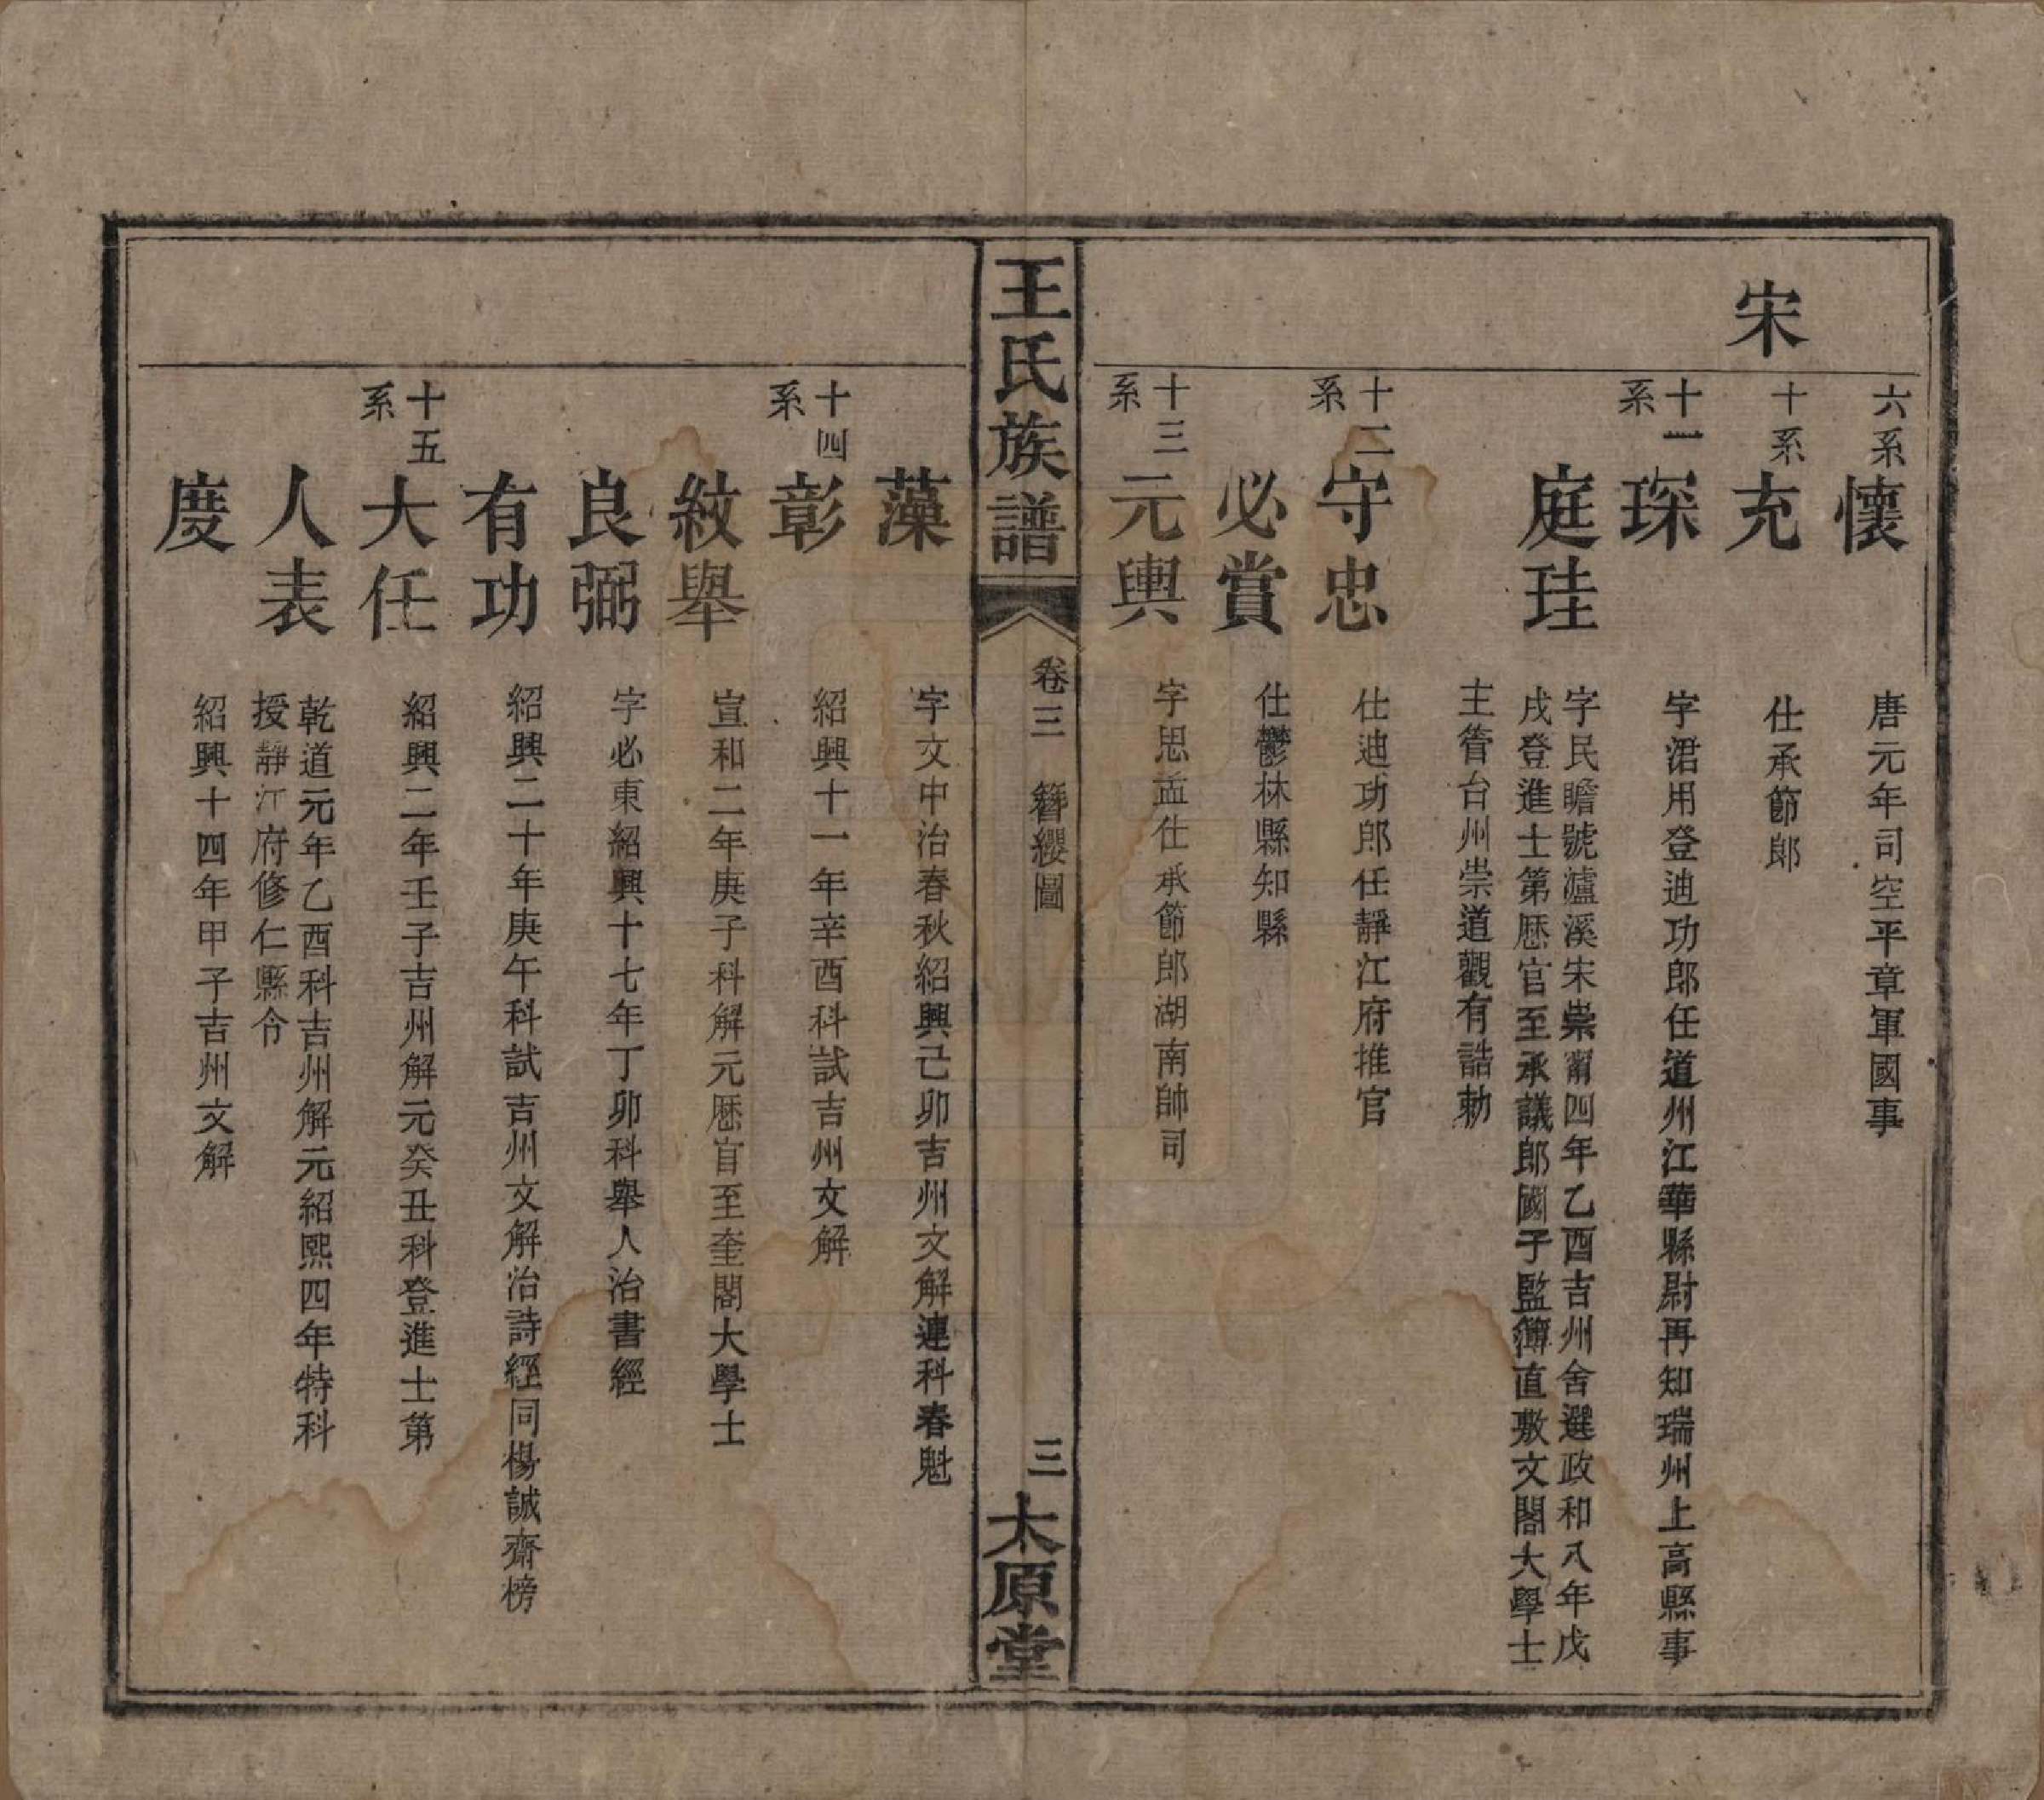 六系
懷
唐元年司空平章軍國事
宋
十系
充
仕承節郎
十一系
琛
字涒用登迪功郎任道州江華縣尉再知瑞州上高縣事
庭珪
字民瞻號瀘溪宋崇甯四年乙酉吉州舍選政和八年戊
戌登進士第歷官至承議郎國子監簿直敷文閣大學士
主管台州崇道觀有誥勅
十二系
守忠
仕迪功郎任靜江府推官
必賞
仕鬱林縣知縣
十三系
元輿
字思孟仕承節郎湖南帥司
王氏族譜
卷三 簪纓圖
三
太原堂
藻
字文中治春秋紹興己卯吉州文解連科春魁
十四系
彰
紹興十一年辛酉科試吉州文解
紋舉
宣和二年庚子科解元歷官至奎閣大學士
良弼
字必東紹興十七年丁卯科舉人治書經
有功
紹興二十年庚午科試吉州文解治詩經同楊誠齋榜
十五系
大任
紹興二年壬子吉州解元癸丑科登進士第
人表
乾道元年乙酉科吉州解元紹熙四年特科
授靜江府修仁縣令
度
紹興十四年甲子吉州文解